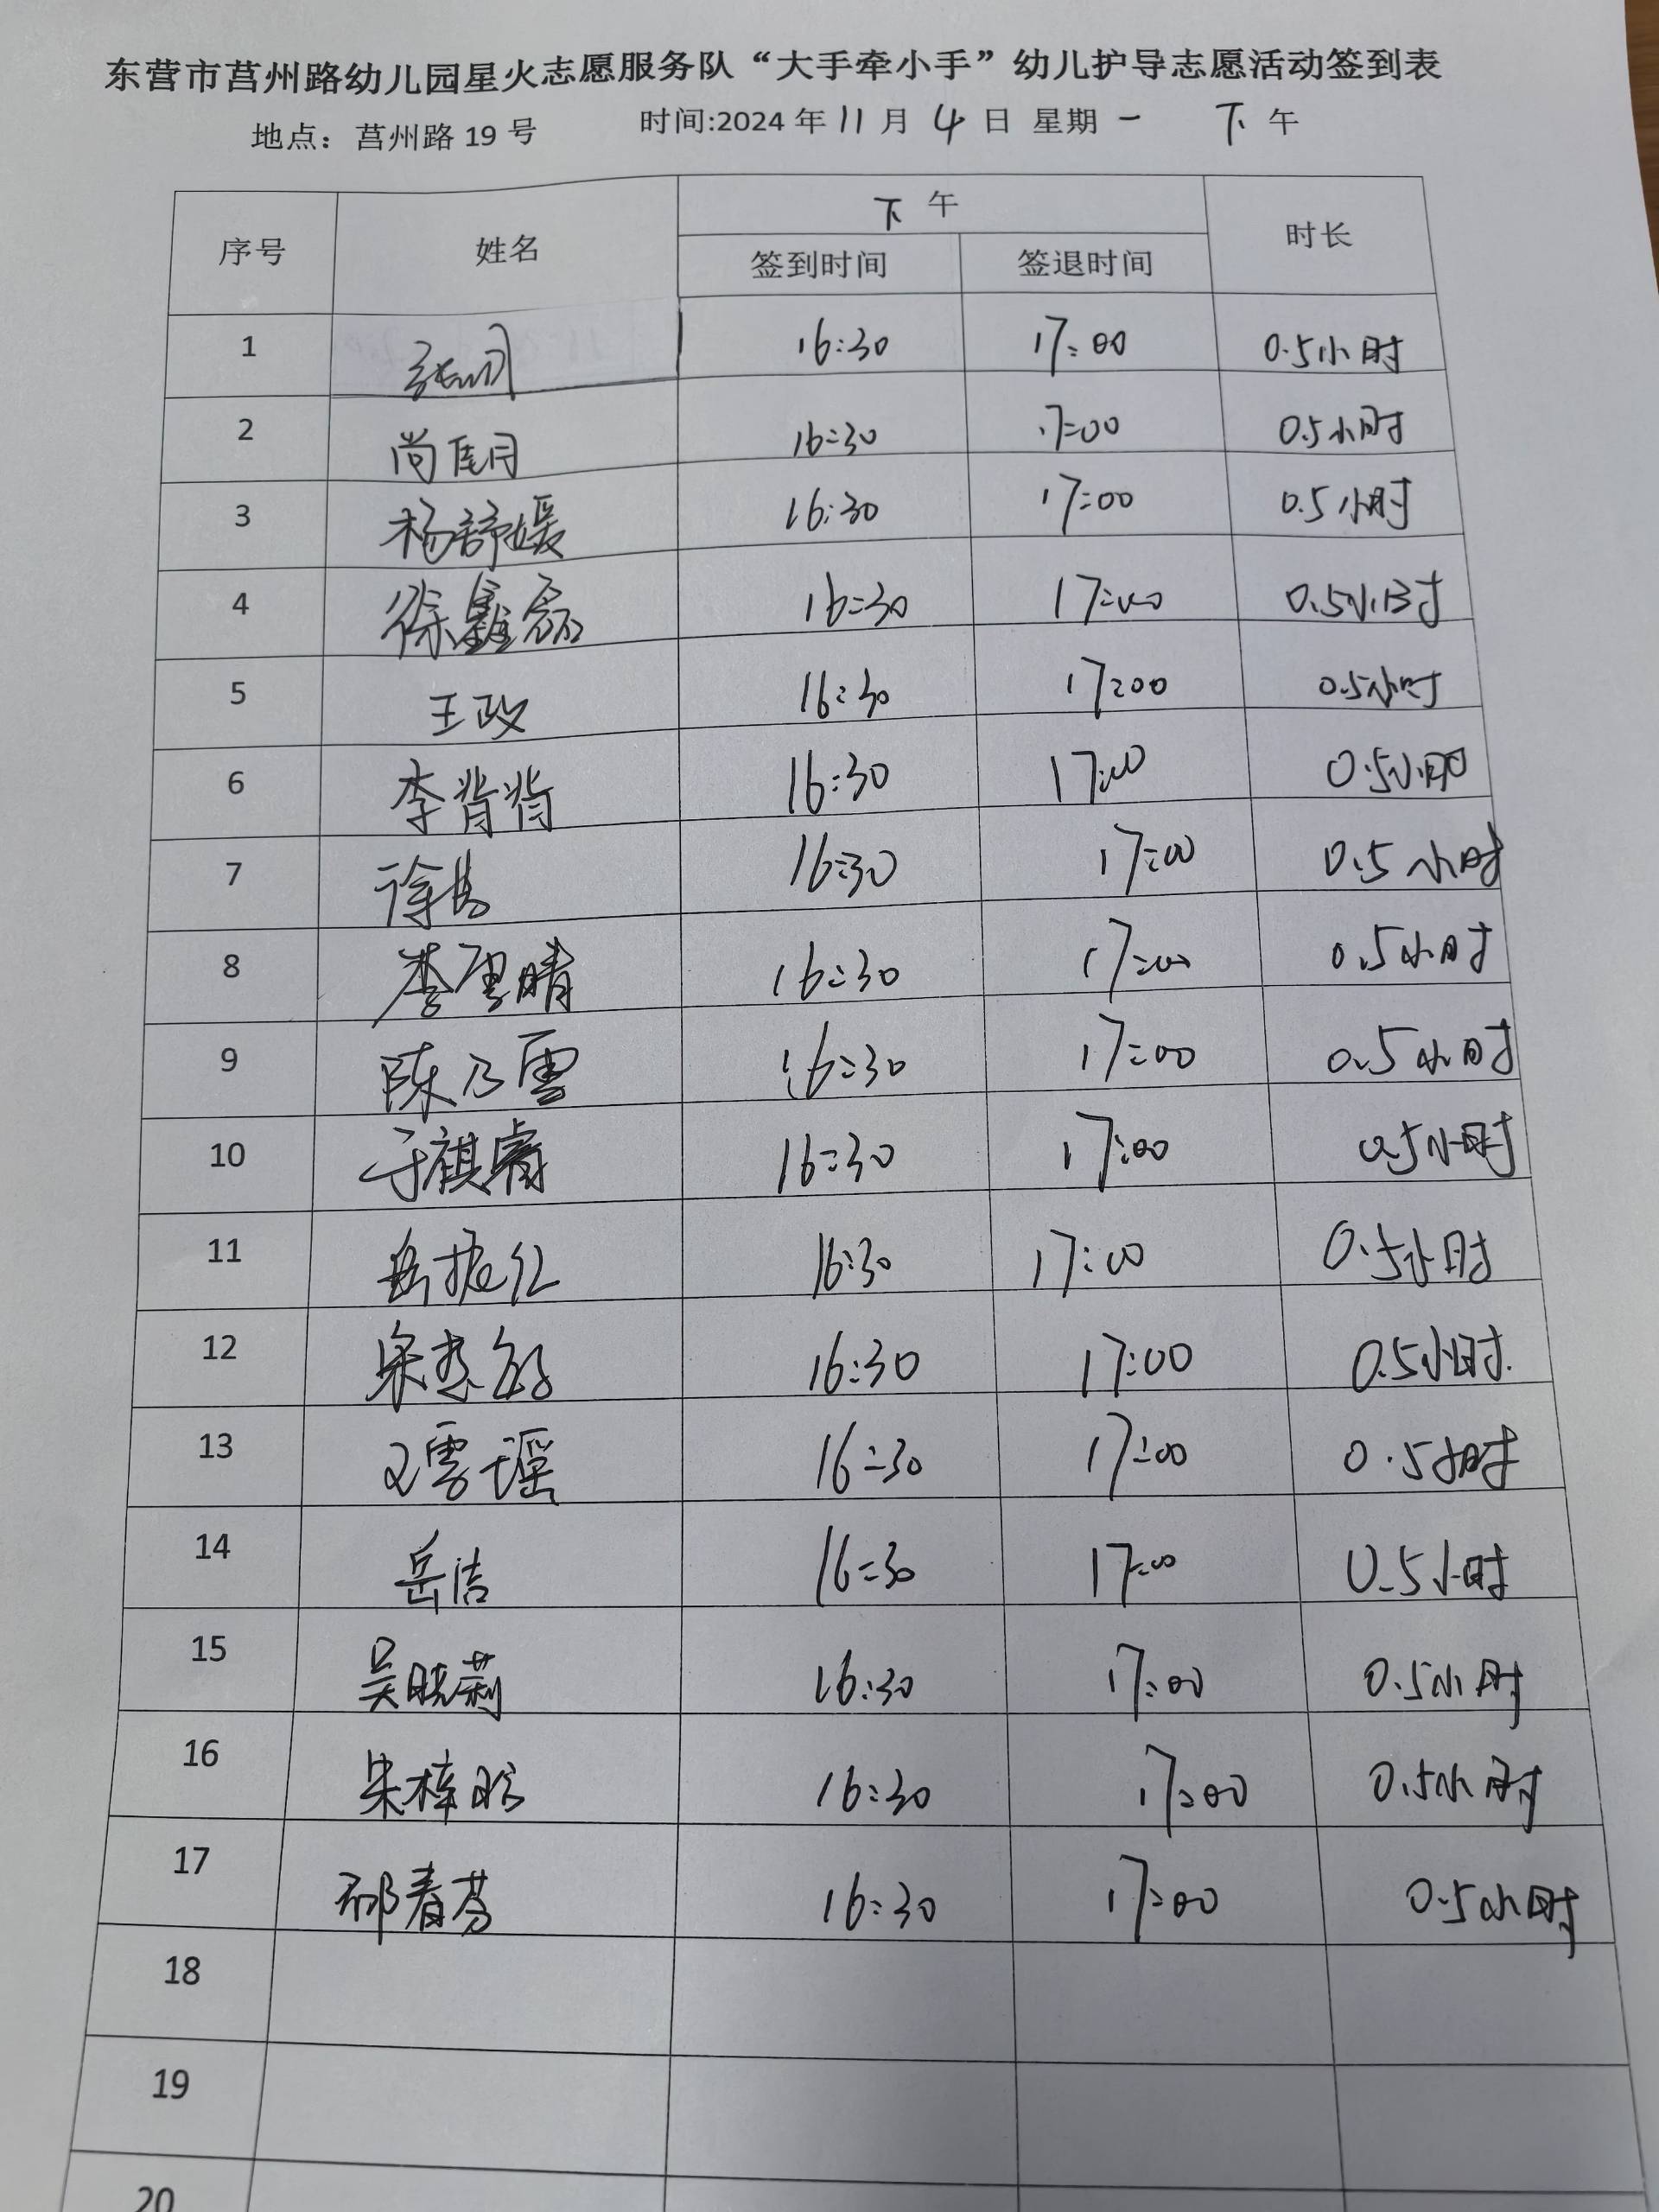 东营市莒州路幼儿园星火志愿服务队“大手牵小手”幼儿护导志愿活动签到表
地点：莒州路 19 号 时间:2024 年 11 月 4 日 星期 一 下 午
序号 姓名 下 午 时长
签到时间 签退时间
1 16:30 17:00 0.5小时
2 尚佳月 16:30 17:00 0.5小时
3 杨舒媛 16:30 17:00 0.5小时
4 徐鑫磊 16:30 17:00 0.5小时
5 王政 16:30 17:00 0.5小时
6 李背背 16:30 17:00 0.5小时
7 16:30 17:00 0.5小时
8 16:30 17:00 0.5小时
9 陈乃雪 16:30 17:00 0.5小时
10 于祺睿 16:30 17:00 0.5小时
11 岳振红 16:30 17:00 0.5小时
12 16:30 17:00 0.5小时
13 王雪瑶 16:30 17:00 0.5小时
14 岳洁 16:30 17:00 0.5小时
15 吴晓莉 16:30 17:00 0.5小时
16 16:30 17:00 0.5小时
17 祁春芬 16:30 17:00 0.5小时
18
19
20